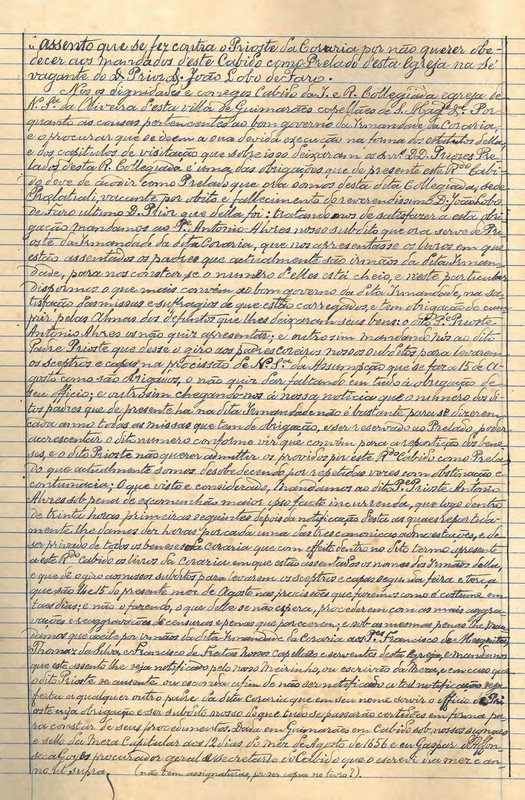 "assento que se fez contra o Prioste da Coraria por não querer obe-
decer aos mandados d'este Cabido como Prelado d'esta Egreja na Sé
vagante do D. Prior D. João Lobo de Faro.
Nós os dignidades e conegos Cabido da I. e R. Collegiada egreja de
N.ª Sr.ª da Oliveira d'esta villa de Guimarães capellães de S. Mag.de &.ª Por
quanto as cousas pertencentes ao bom governo da Irmandade da Coraria,
e o procurar que se deem a sua devida execução na forma dos estatutos della,
e dos capitulos de visitação que sobre isso deixaram os snr.es D.D. Priores Pre-
lados desta R. Collegiada é uma das obrigações que de presente este R.do Cabi-
do deve de acodir como Prelado que ora somos desta dita Collegiada, sede
Prelatiali, vacante por obito e fallecimento do reverendissimo D. João Lobo
de Faro ultimo D. Prior que della foi: tratando nos de satisfazer a esta obri-
gação mandamos ao P.e Antonio Alvres nosso subdito que ora serve de Pri-
oste da Irmandade da dita Coraria, que nos apresentasse os livros em que
estão assentados os padres que actualmente são irmãos da dita Irman-
dade, para nos constar se o numero d'elles está cheio, e n'este particular
dispormos o que mais convêm ao bom governo da dita Irmandade, na sa-
tisfação das missas e suffragios de que estão carregados, e tem obrigação de cum-
prir pelas Almas dos defuntos que lhes deixaram seus bens: o dito P.e Prioste
Antonio Alvres os não quiz apresentar; e outro sim mandamos nós ao dito
Padre Prioste que desse o giro aos padres coreiros nossos subditos para levarem
os sceptros e capas na procissão de N.ª Sr.ª da Assumpção que se fará a 15 de A-
gosto como são obrigados, o não quiz dar faltando em tudo á obrigação de
seu officio; e outro sim chegando nos á nossa noticia que o numero dos di-
tos padres que de presente ha na dita Irmandade não é bastante para se dizerem
cada anno todas as missas que tem de obrigação, e ser reservado ao Prelado poder
accrescentar o dito numero conforme vir que convêm para a repartição dos bene-
ses, e o dito Prioste não querer admittir os providos por este R.do Cabido como Prela-
do que actualmente somos desobedecendo por repetidas vezes com obstinação e
contumacia; O que visto e considerado, Mandamos ao dito P.e Prioste Antonio
Alvres sob pena de excomunhão maior ipso facto incurrenda, que logo dentro
de trinta horas primeiras seguintes depois da notificação d'esta as quaes repartida-
mente lhe damos dez horas por cada uma das tres canonicas admoestações, e de
ser privado de todos os beneses da Coraria que com effeito dentro no dito termo apresente
a este R.do Cabido os livros da Coraria em que estão assentados os nomes dos Irmãos della,
e que dê o giro aos nossos subditos para levarem os sceptros e capas segunda feira e terça
que são 14 e 15 do presente mez de Agosto nas procissões que fizermos como é costume em
taes dias; e não o fazendo, o que delle se não espera, procederemos com as mais aggra-
vações e reaggravações de censuras e penas que parecerem; e sob as mesmas penas lhe man-
damos que aceite por irmãos da dita Irmandade da Coraria aos P.es Francisco de Mesquita,
Thomaz da Silva, e Francisco de Freitas nossos capellães e serventes desta Egreja, e mandamos
que este assento lhe seja notificado pelo nosso Meirinho, ou escrivão da Meza, e em caso que
o dito Prioste se ausente ou esconda a fim de não ser notificado, a tal notificação seja
feita a qualquer outro padre da dita Coraria que em seu nome servir o officio de Pri-
oste e seja obrigação e ser subdito nosso do que tudo se passarão certidões em forma pa-
ra constar de seus procedimentos. Dada em Guimarães em Cabido sob nossos signaes
e sello da Meza Capitular aos 12 dias do mez de Agosto de 1656 e eu Gaspar d'Affon-
seca Goes procurador geral e secretario do Cabido que o escrevi dia mez e an-
no ut supra. (não tem assignaturas, por ser copia no livro?).